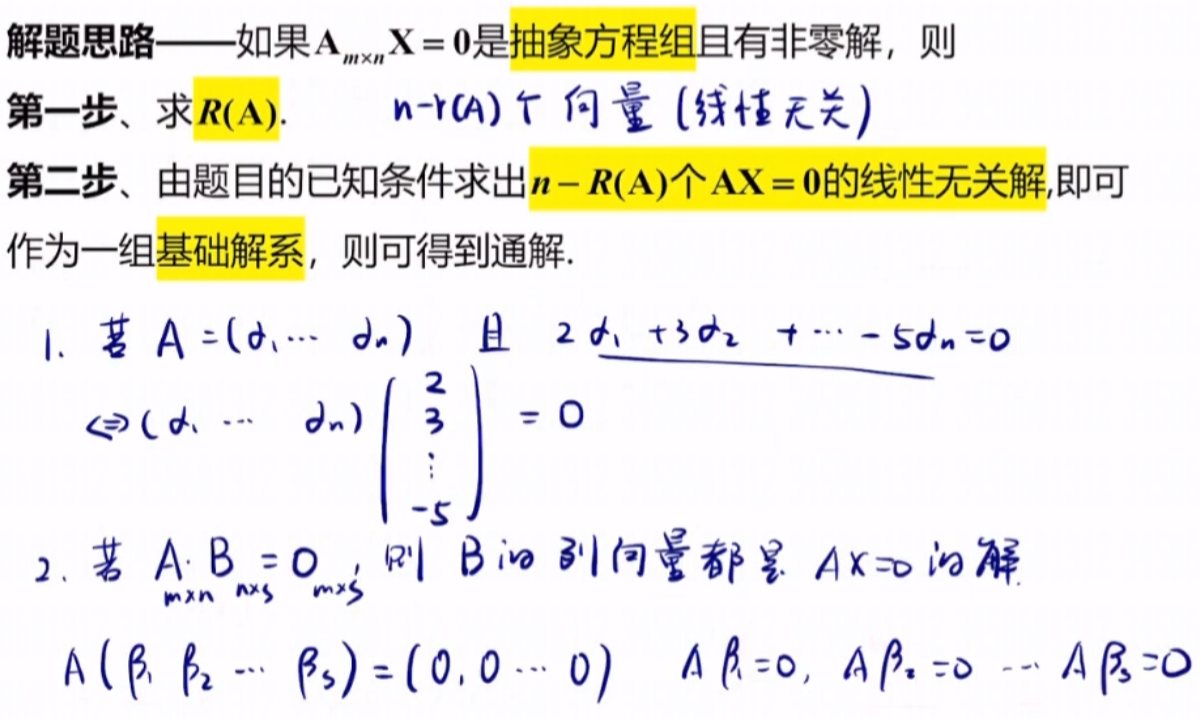 解题思路——如果AₘₓₙX = 0是抽象方程组且有非零解，则
第一步、求R(A).  n-r(A)个向量(线性无关)
第二步、由题目的已知条件求出n – R(A)个AX = 0的线性无关解,即可
作为一组基础解系，则可得到通解.
1. 若 A =(α₁ ⋯ αₙ) 且 2α₁ +3α₂ + ⋯ -5αₙ=0
⇔(α₁ ⋯ αₙ) (2 3 ⋮ -5) = 0
2. 若 Aₘₓₙ·Bₙₓₛ=0ₘₓₛ, 则 B的列向量都是 AX=0的解.
A(β₁ β₂ ⋯ βₛ)=(0,0⋯0) Aβ₁=0, Aβ₂=0 ⋯ Aβₛ=0